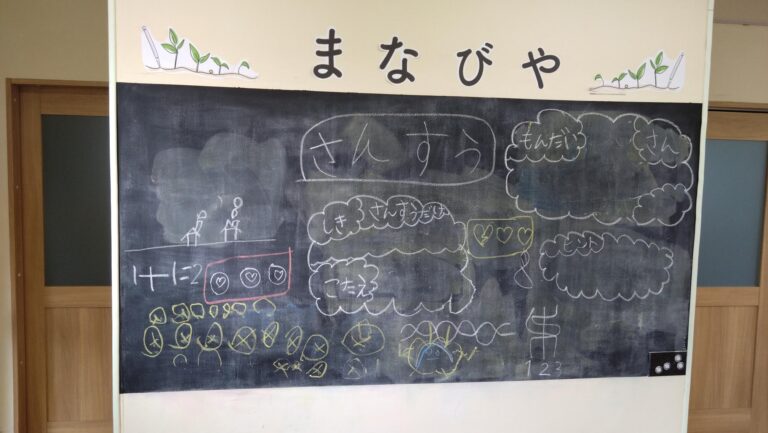 まなびや
さんすう
もんだい
さん
しき
さんすうだけ
こたえ
ヒント
1+1=2
1 2 3